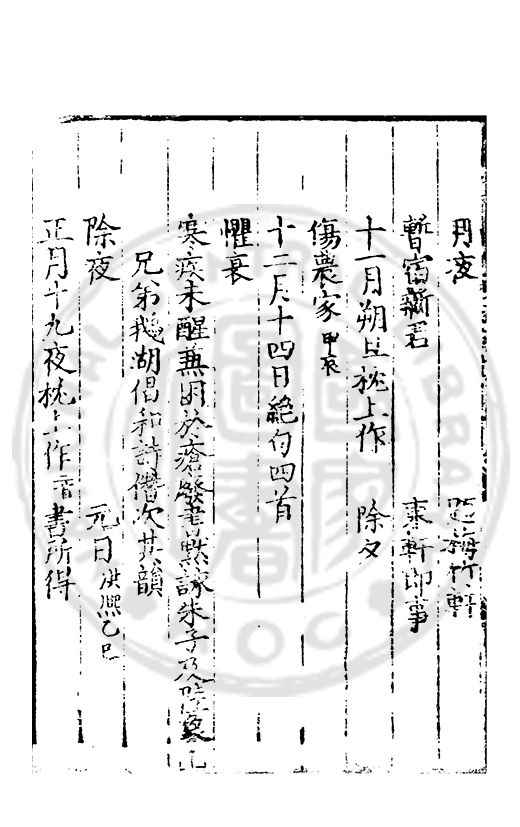 月夜 題梅竹軒
暫宿新居 東軒即事
十一月朔旦枕上作 除夕
傷農家 甲辰
十二月十四日絕句四首
懼衰
寒疾未醒兼 瘡發 默詠朱子及陸象
兄弟鵝湖倡和詩僭次其韻
除夜 元日 洪熙乙巳
正月十九夜枕上作 書所得